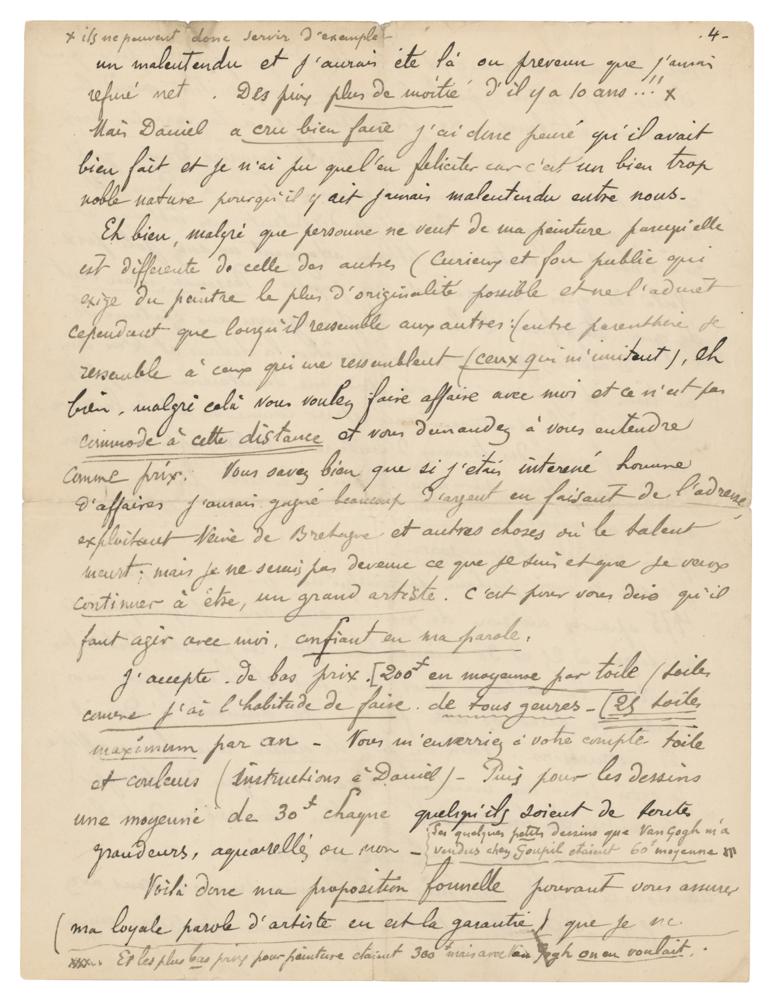 x ils ne peuvent donc servir d'exemple
.4-
un malentendu et j'aurais été là ou prevenu que j'aurais
refusé net. Des prix plus de moitié d'il y a 10 ans!!! x
Mais Daniel a cru bien faire j'ai donc pensé qu'il avait
bien fait et je n'ai pu que l'en feliciter car c'est un bien trop
noble nature pourqu'il y ait jamais malentendu entre nous-
Eh bien, malgré que personne ne veut de ma peinture parcequ'elle
est differente de celle des autres (Curieux et fou public qui
exige du peintre le plus d'originalité possible et ne l'admet
cependant que lorsqu'il ressemble aux autres: (entre parenthèse je
ressemble à ceux qui me ressemblent (ceux qui m'imitent), eh
bien, malgré celà vous voulez faire affaire avec moi et ce n'est pas
commode à cette distance et vous demandez à vous entendre
comme prix. Vous savez bien que si j'étais interessé homme
d'affaires j'aurais gagné beaucoup d'argent en faisant de l'adresse,
exploitant Veine de Bretagne et autres choses où le talent
meurt; mais je ne serais pas devenu ce que je suis et que je veux
continuer à être, un grand artiste. C'est pour vous dire qu'il
faut agir avec moi, confiant en ma parole.
J'accepte de bas prix. [200f en moyenne par toile (toiles
comme j'ai l'habitude de faire. de tous genres - [25 toiles
maximum par an - Vous m'enverriez à votre compte toile
et couleurs (Instructions à Daniel) - Puis pour les dessins
une moyenne de 30f chaque quelqu'ils soient de toutes
grandeurs, aquarellés ou non -
Les quelques petits dessins que Van Gogh m'a
vendus chez Goupil etaient 60f moyenne xx
Voilà donc ma proposition formelle pouvant vous assurer
(ma loyale parole d'artiste en est la garantie) que je ne
xx. Et les plus bas prix pour peinture etaient 300f mais avec Van Gogh on en voulait.